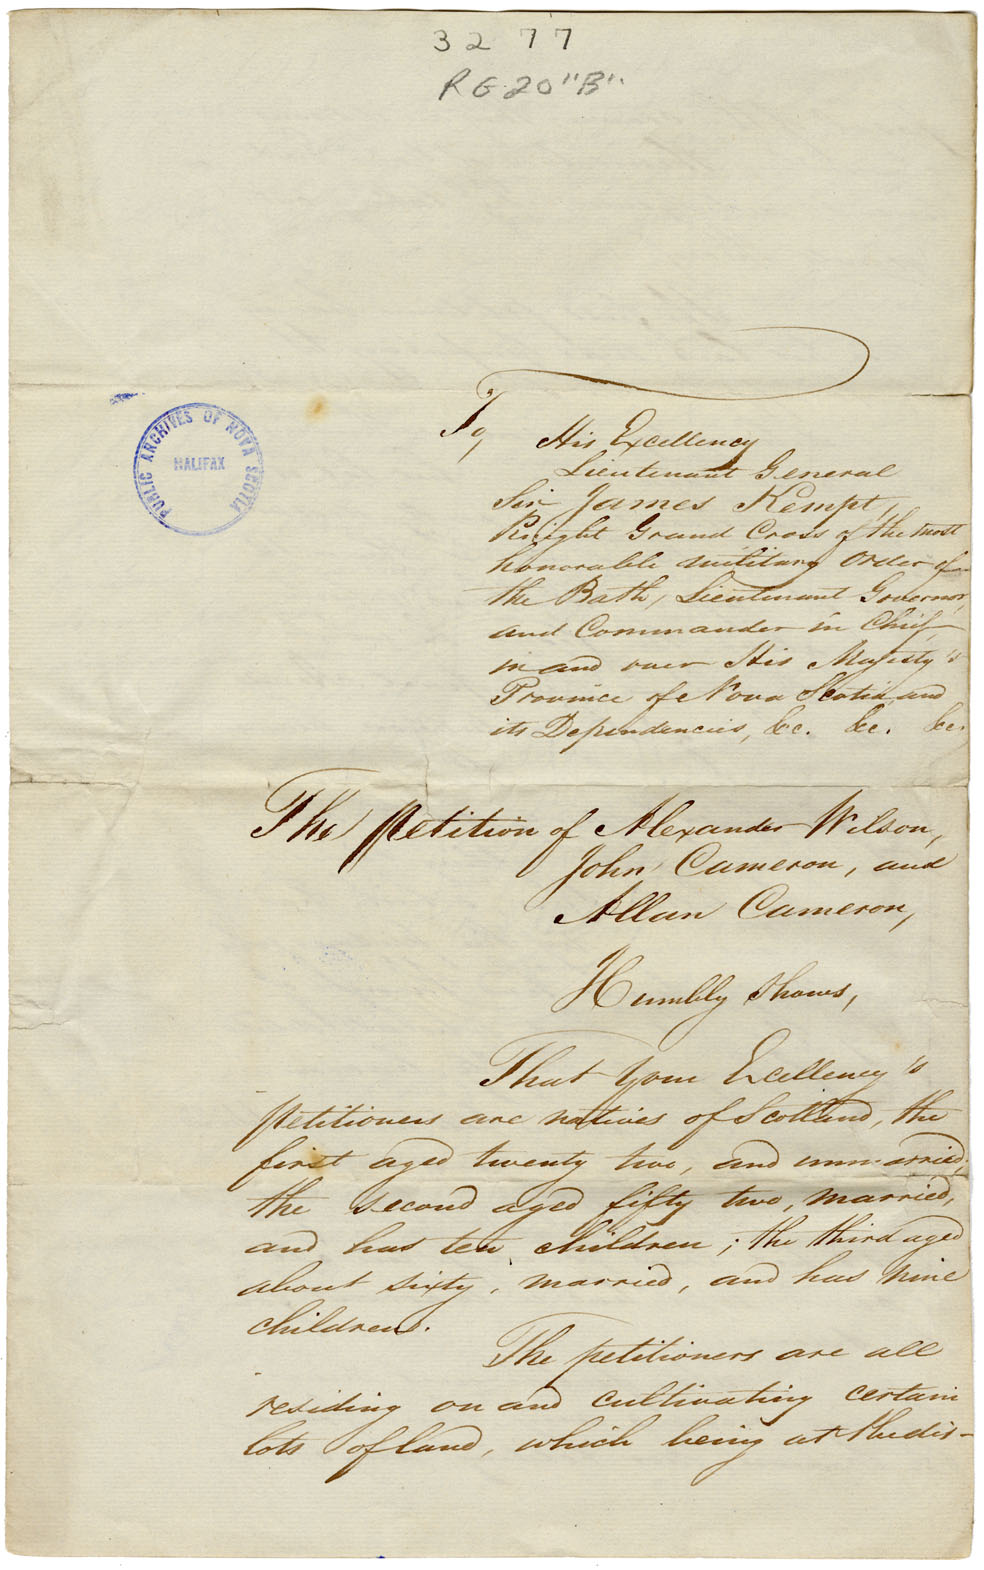 3277
RG 20 "B"
PUBLIC ARCHIVES OF NOVA SCOTIA
HALIFAX
To, His Excellency
Lieutenant General
Sir James Kempt,
Knight Grand Cross of the most
honorable military Order of
the Bath, Lieutenant Governor,
and Commander in Chief,
in and over His Majesty's
Province of Nova Scotia, and
its Dependencies, &c. &c. &c.
The Petition of Alexander Wilson,
John Cameron, and
Allan Cameron,
Humbly Shows,
That your Excellency's
petitioners are natives of Scotland, the
first aged twenty two, and unmarried,
the second aged fifty two, married,
and has ten children; the third aged
about sixty, married, and has nine
children.
The petitioners are all
residing on and cultivating certain
lots of land, which being at the dis-